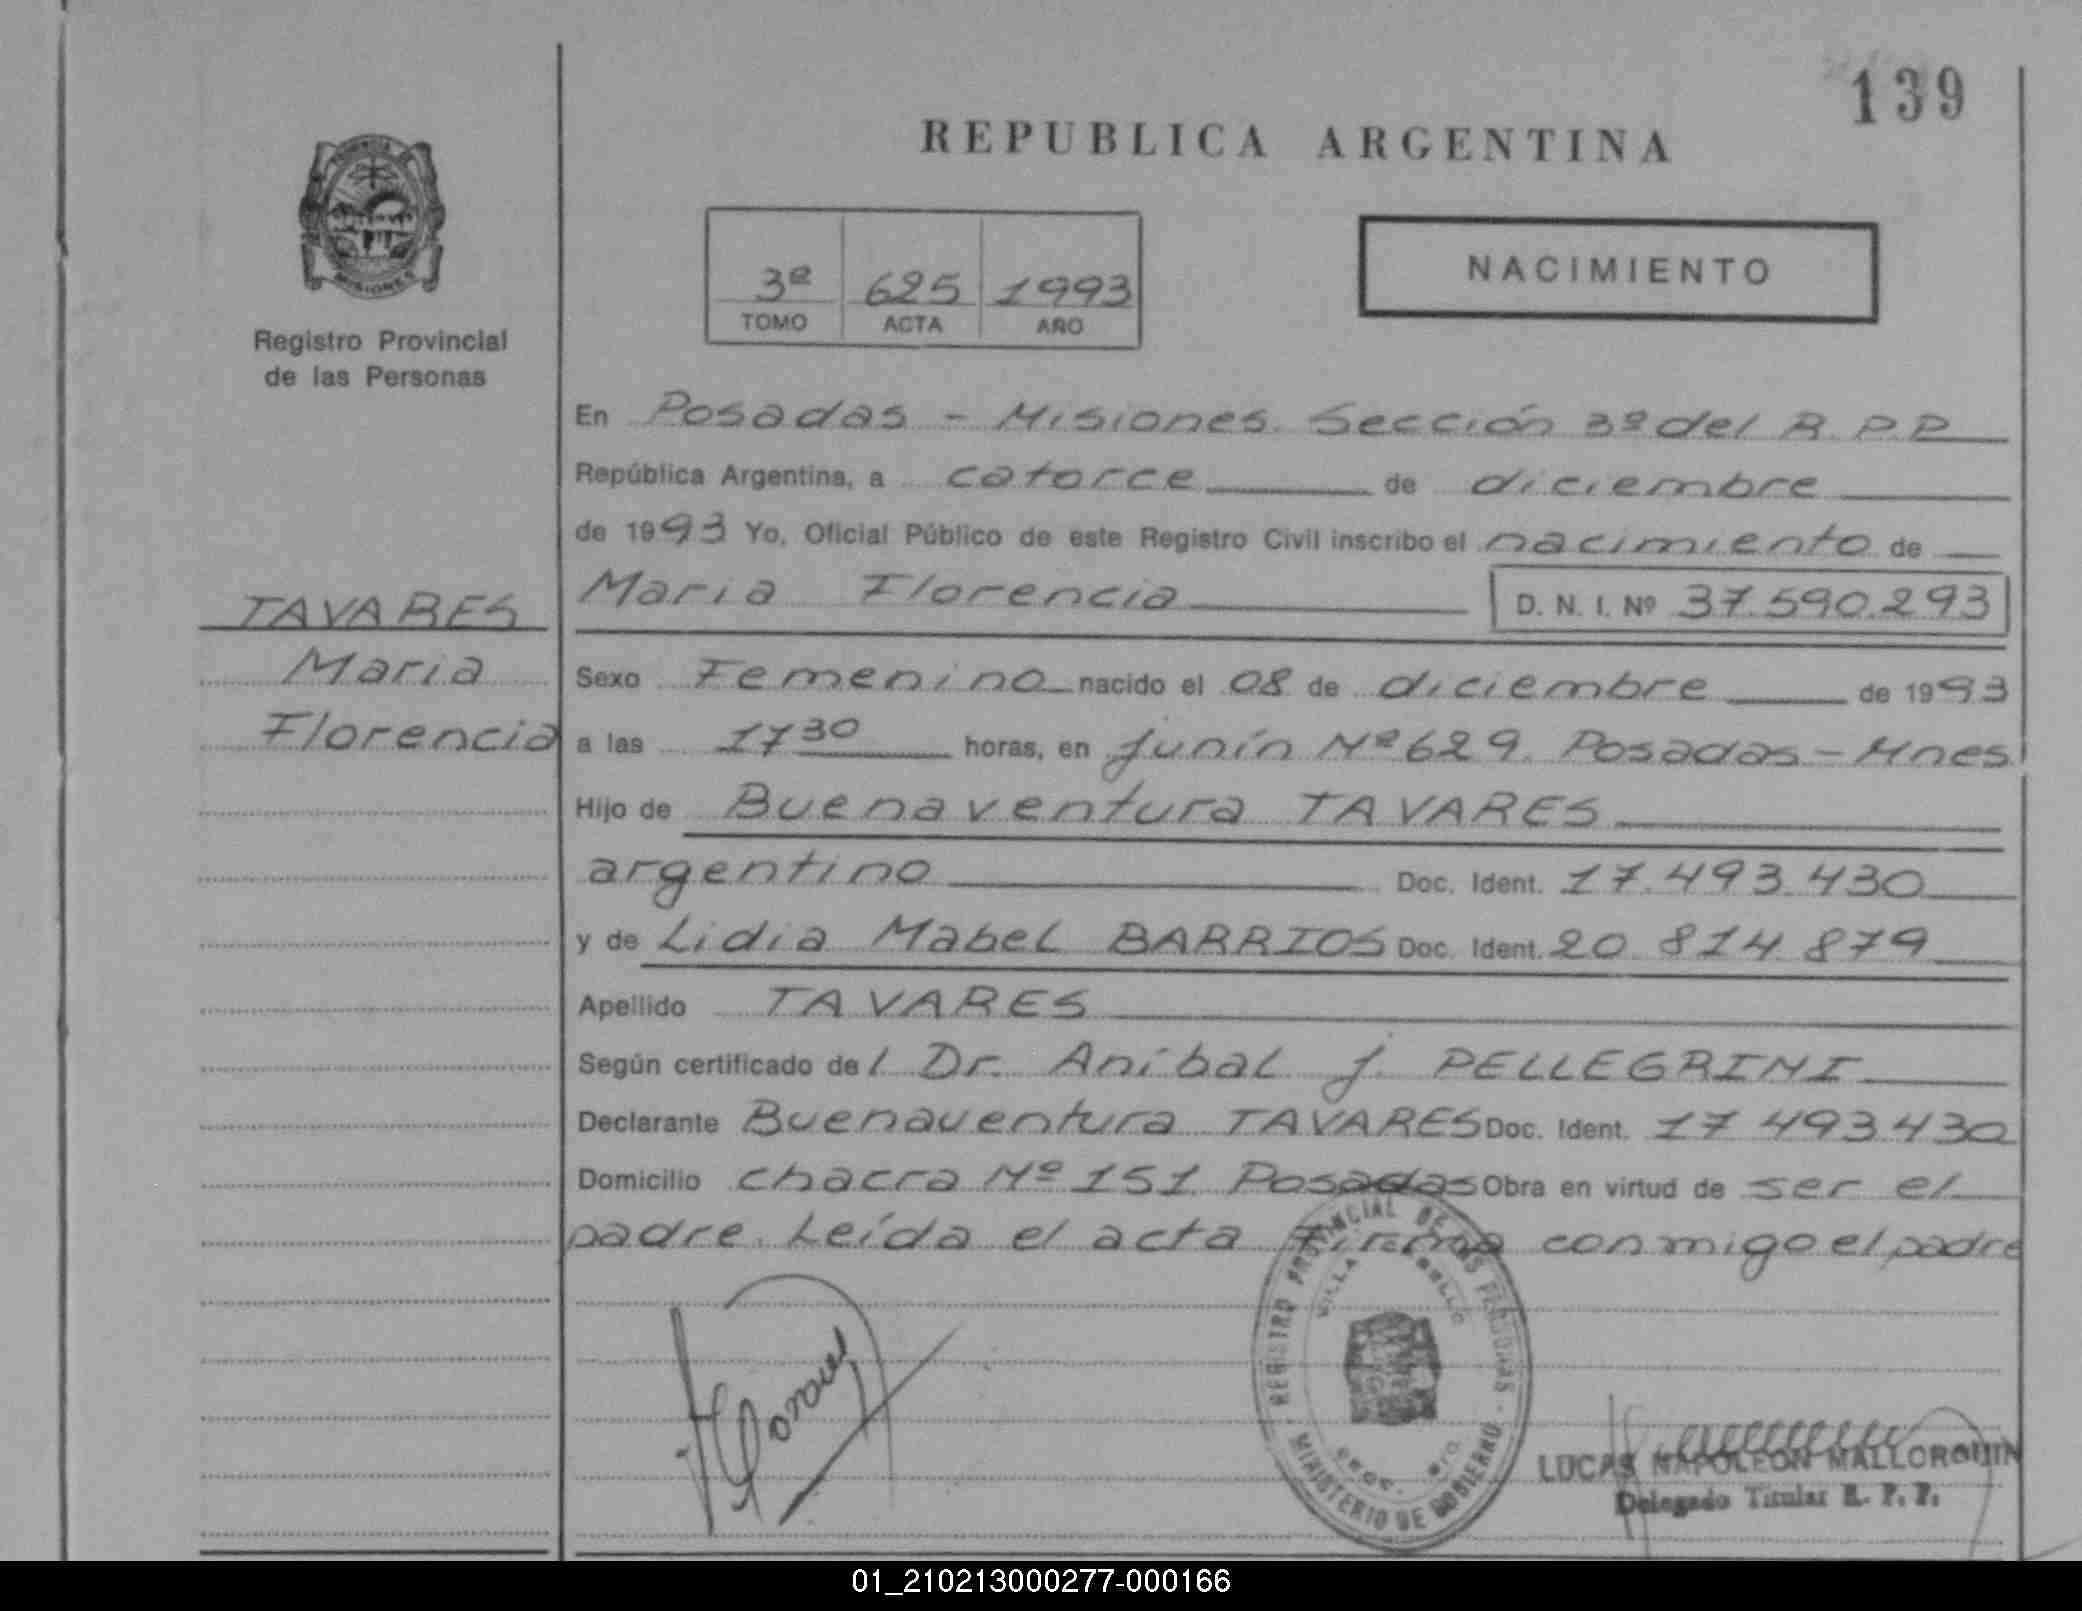 139
REPUBLICA ARGENTINA
PROVINCIA DE
MISIONES
Registro Provincial
de las Personas
3ª 625 1993
TOMO ACTA AÑO
NACIMIENTO
En Posadas - Misiones. Sección 3ª del R.P.P
República Argentina, a catorce de diciembre
de 1993 Yo, Oficial Público de este Registro Civil inscribo el nacimiento de
TAVARES
Maria
Florencia
Maria Florencia D. N. I. Nº 37.590.293
Sexo Femenino nacido el 08 de diciembre de 1993
a las 17 30 horas, en Junín Nº 629. Posadas - Mnes
Hijo de Buenaventura TAVARES
argentino Doc. Ident. 17.493.430
y de Lidia Mabel BARRIOS Doc. Ident. 20.814.879
Apellido TAVARES
Según certificado del Dr. Aníbal J. PELLEGRINI
Declarante Buenaventura TAVARES Doc. Ident. 17 493.430
Domicilio chacra Nº 151 Posadas Obra en virtud de ser el
padre. Leída el acta firma conmigo el padre
REGISTRO PROVINCIAL DE LAS PERSONAS
VILLA
MINISTERIO DE GOBIERNO
LUCAS NAPOLEON MALLORQUIN
Delegado Titular R. P. P.
01_210213000277-000166